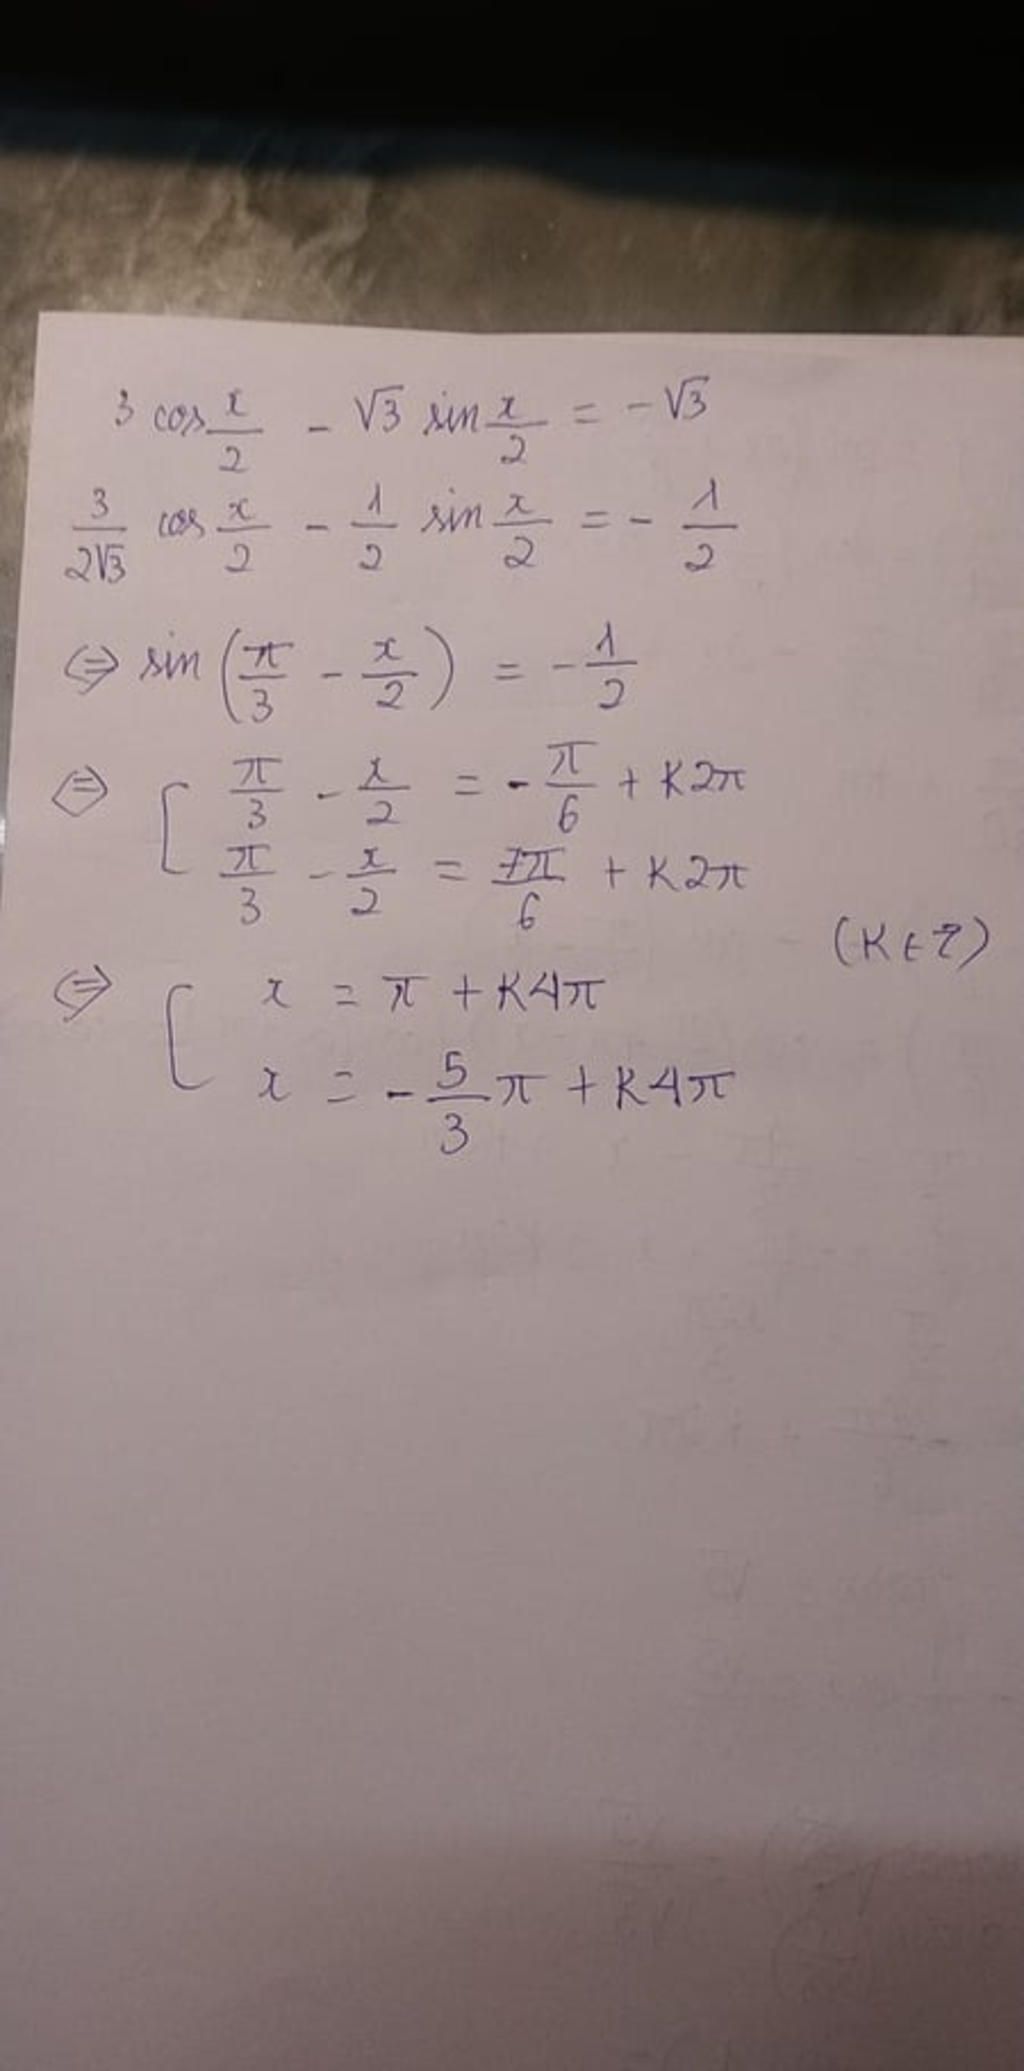 3 cos x/2 - √3 sin x/2 = -√3
3/2√3 cos x/2 - 1/2 sin x/2 = - 1/2
⇔ sin (π/3 - x/2) = - 1/2
⇔ [ π/3 - x/2 = - π/6 + K2π
π/3 - x/2 = 7π/6 + K2π
(K ∈ Z)
⇔ [ x = π + K4π
x = - 5/3 π + K4π